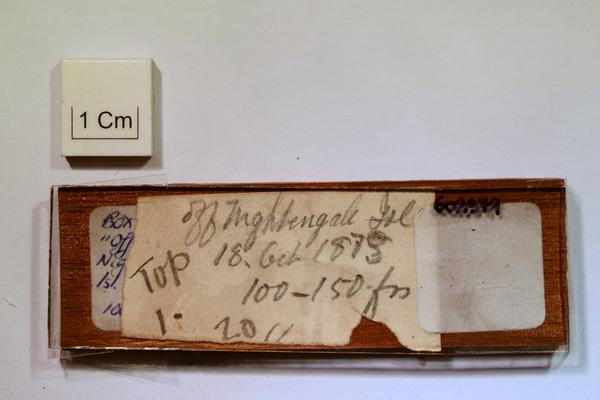 1 Cm
off Nightengale Isl
18. Oct 1873
Top 100-150 fms
1- 20 "
Box
"off
Nig
Isl.
10